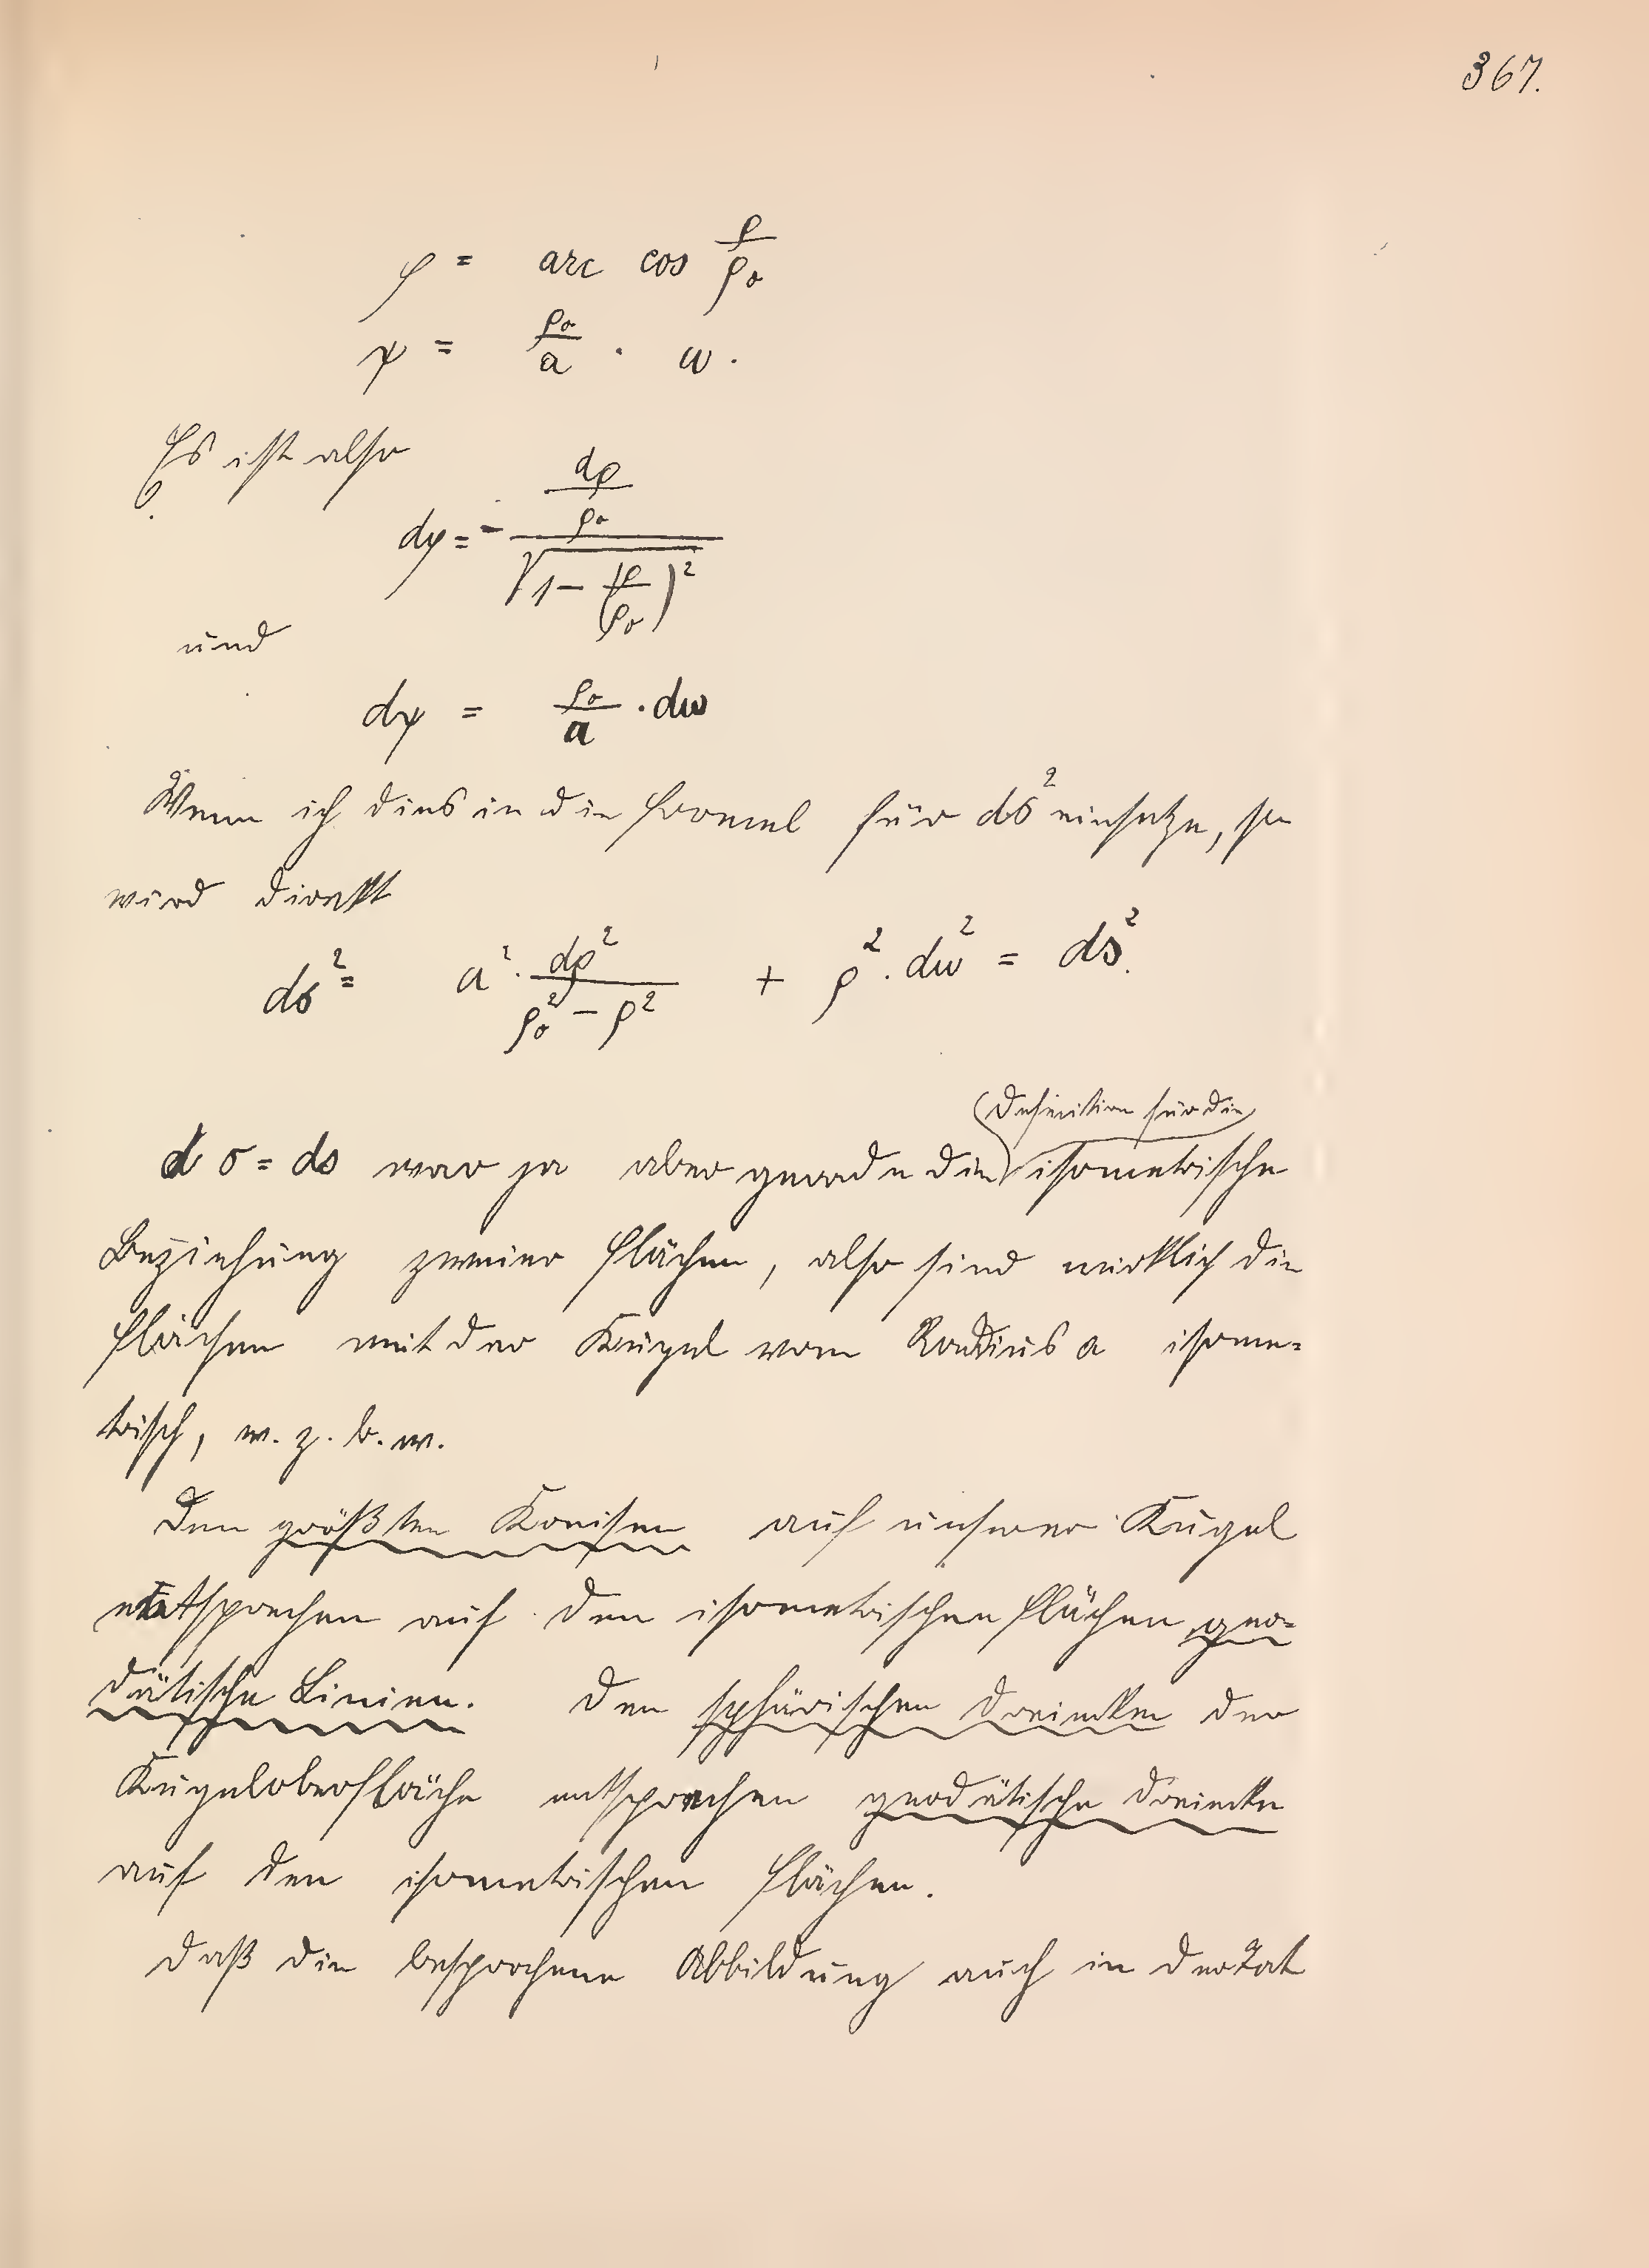 367.
φ = arc cos ρ/ρ₀
ψ = ρ₀/a · ω.
Es ist also
dφ = - (dρ/ρ₀) / √(1 - (ρ/ρ₀)²)
und
dψ = ρ₀/a · dω
Wenn ich dies in die Formel für dσ² einsetze, so
wird direkt
dσ² = a² · dρ²/(ρ₀² - ρ²) + ρ² · dω² = ds².
(Definition für die)
dσ = ds war ja aber gerade die isometrische
Beziehung zweier Flächen, also sind wirklich die
Flächen mit der Kugel vom Radius a isome-
trisch, w. z. b. w.
Den größten Kreisen auf unserer Kugel
entsprechen auf den isometrischen Flächen geo-
dätische Linien. Den sphärischen Dreiecken der
Kugeloberfläche entsprechen geodätische Dreiecke
auf den isometrischen Flächen.
Daß die besprochene Abbildung auch in der Tat